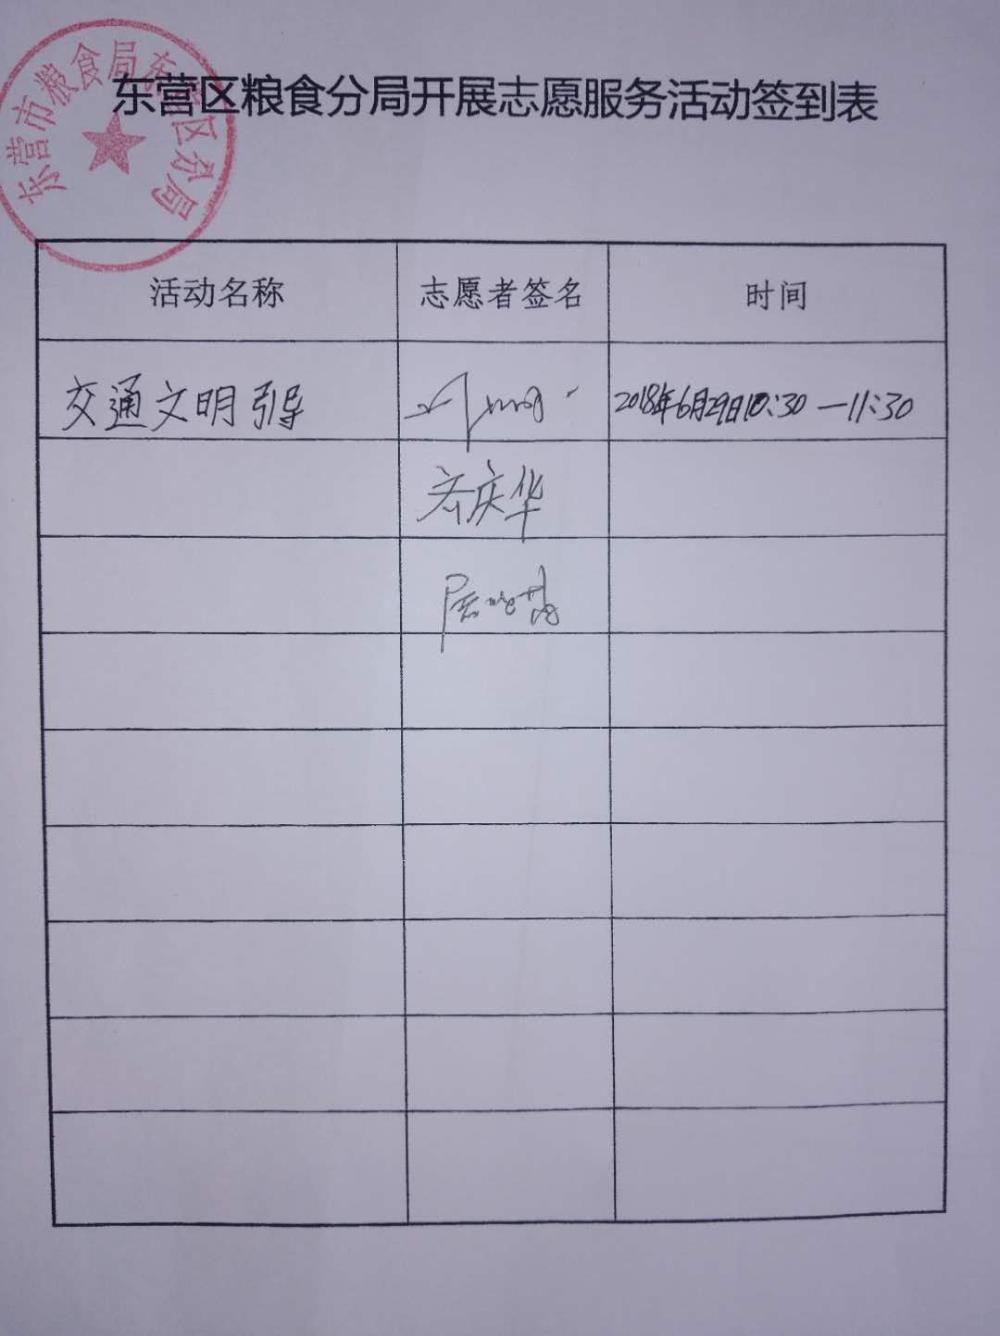 东营区粮食分局开展志愿服务活动签到表
东营市粮食局东营区分局
活动名称 志愿者签名 时间
交通文明引导 2018年6月29日10:30—11:30
庆华